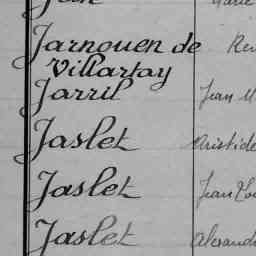 Jarnouen de
Villartay
Jarril Jean M
Jaslet Aristide
Jaslet Jean Lou
Jaslet Alexand